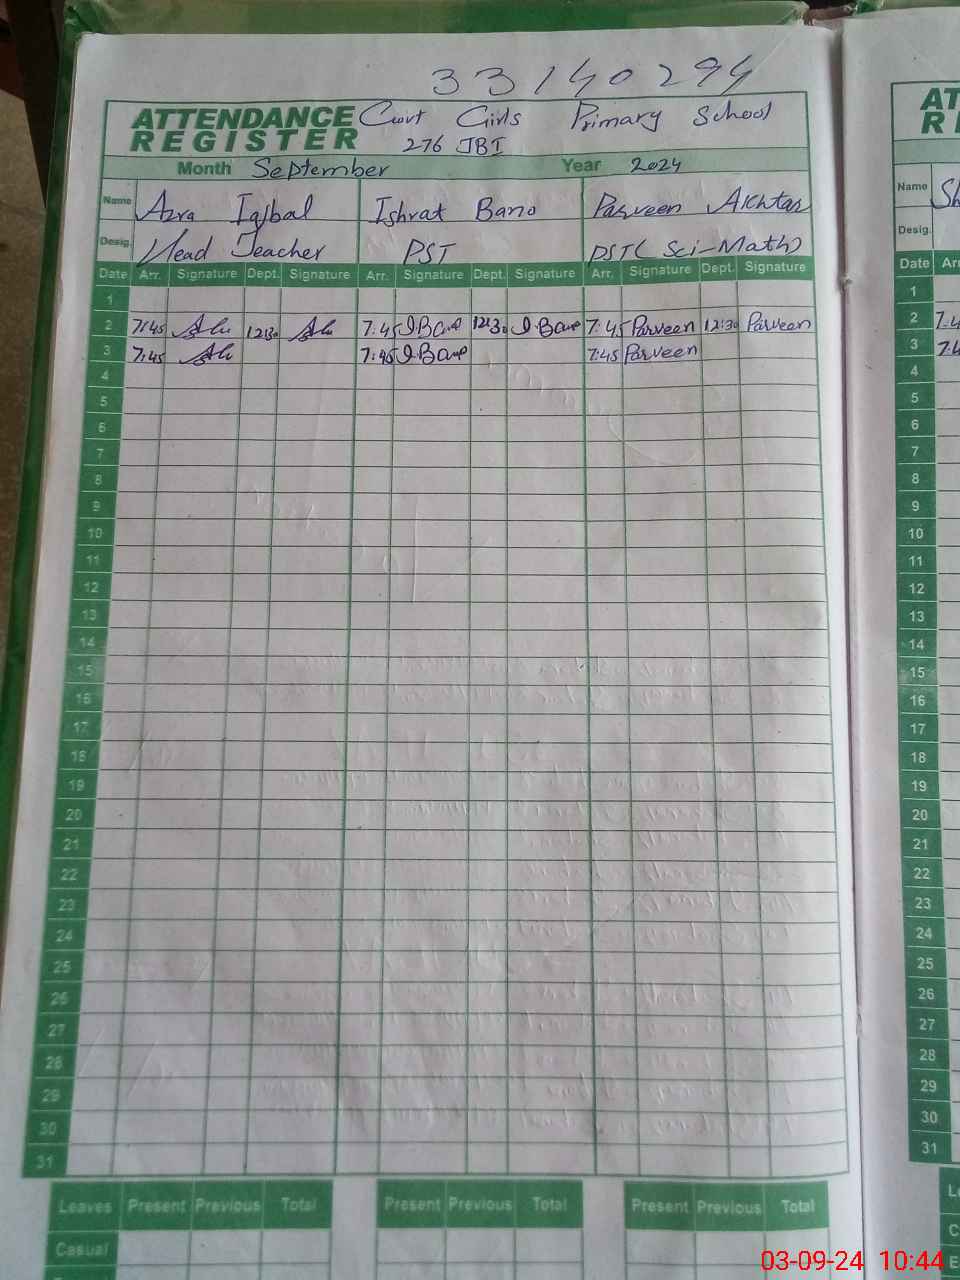 33140294
ATTENDANCE REGISTER Govt Girls Primary School
276 JBI
Month September Year 2024
Name Azra Iqbal Ishrat Bano Parveen Akhtar
Desig. Head Teacher PST PST( Sci-Math)
Date Arr. Signature Dept. Signature Arr. Signature Dept. Signature Arr. Signature Dept. Signature
1
2 7:45 12:30 7:45 I.Bano 12:30 I.Bano 7:45 Parveen 12:30 Parveen
3 7:45 7:45 I.Bano 7:45 Parveen
4
5
6
7
8
9
10
11
12
13
14
15
16
17
18
19
20
21
22
23
24
25
26
27
28
29
30
31
Leaves Present Previous Total Present Previous Total Present Previous Total
Casual
AT
R
Name Sh
Desig.
Date Arr
1
2 7:4
3 7:4
4
5
6
7
8
9
10
11
12
13
14
15
16
17
18
19
20
21
22
23
24
25
26
27
28
29
30
31
03-09-24 10:44